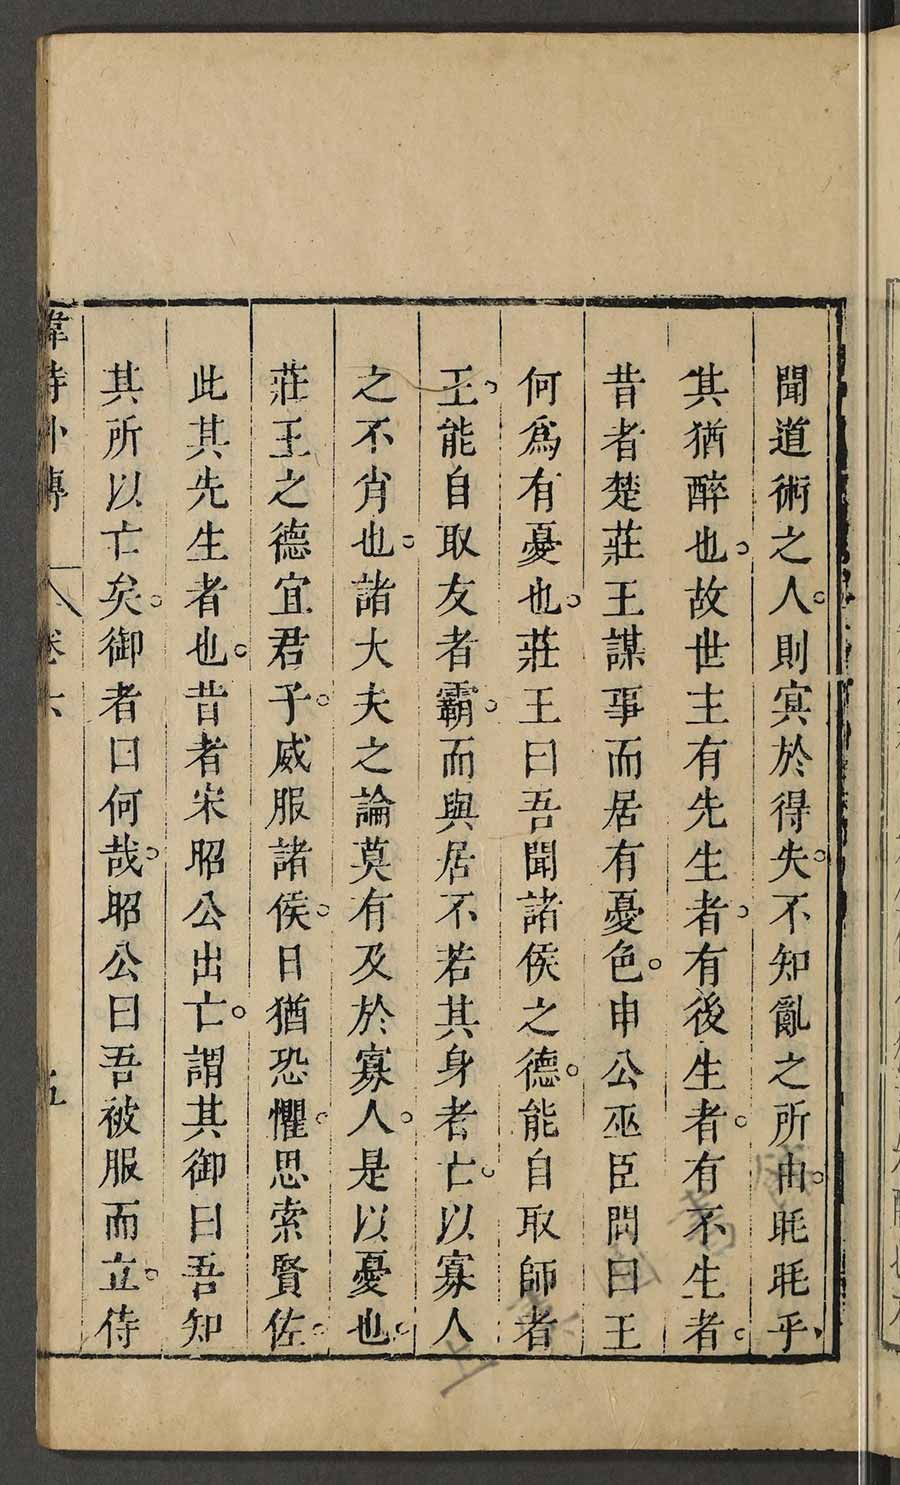 聞道術之人。則冥於得失。不知亂之所由。眊眊乎
其猶醉也。故世主有先生者。有後生者。有不生者。
昔者楚莊王謀事而居有憂色。申公巫臣問曰王
何爲有憂也。莊王曰吾聞諸侯之德。能自取師者
王。能自取友者霸。而與居不若其身者亡。以寡人
之不肖也。諸大夫之論莫有及於寡人。是以憂也。
莊王之德宜君子。威服諸侯。日猶恐懼。思索賢佐。
此其先生者也。昔者宋昭公出亡。謂其御曰吾知
其所以亡矣。御者曰何哉。昭公曰吾被服而立。侍
韋詩外傳 卷六 五